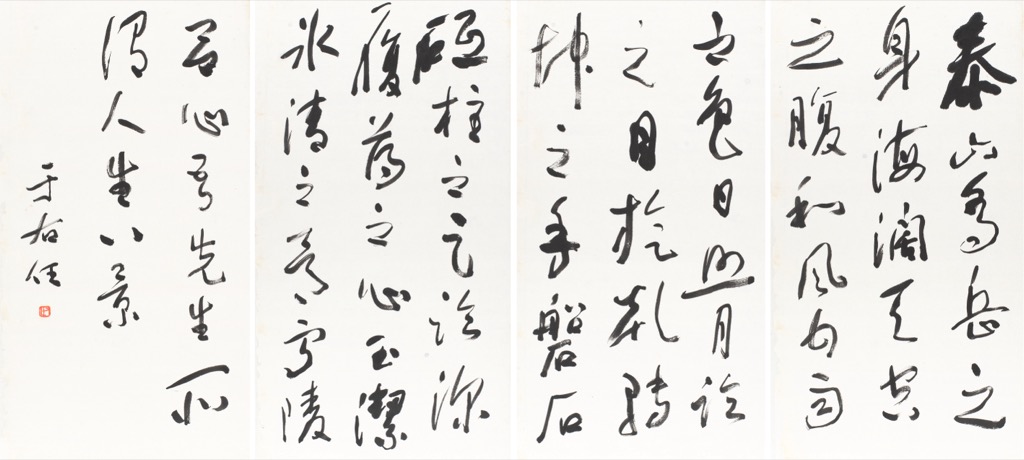 泰山喬岳之
身海闊天空
之腹和風甘雨
之色日照月臨
之目旋乾轉
坤之手磐石
砥柱之足臨深
履薄之心玉潔
冰清之骨寧陵
呂心吾先生所
謂人生八景
于右任